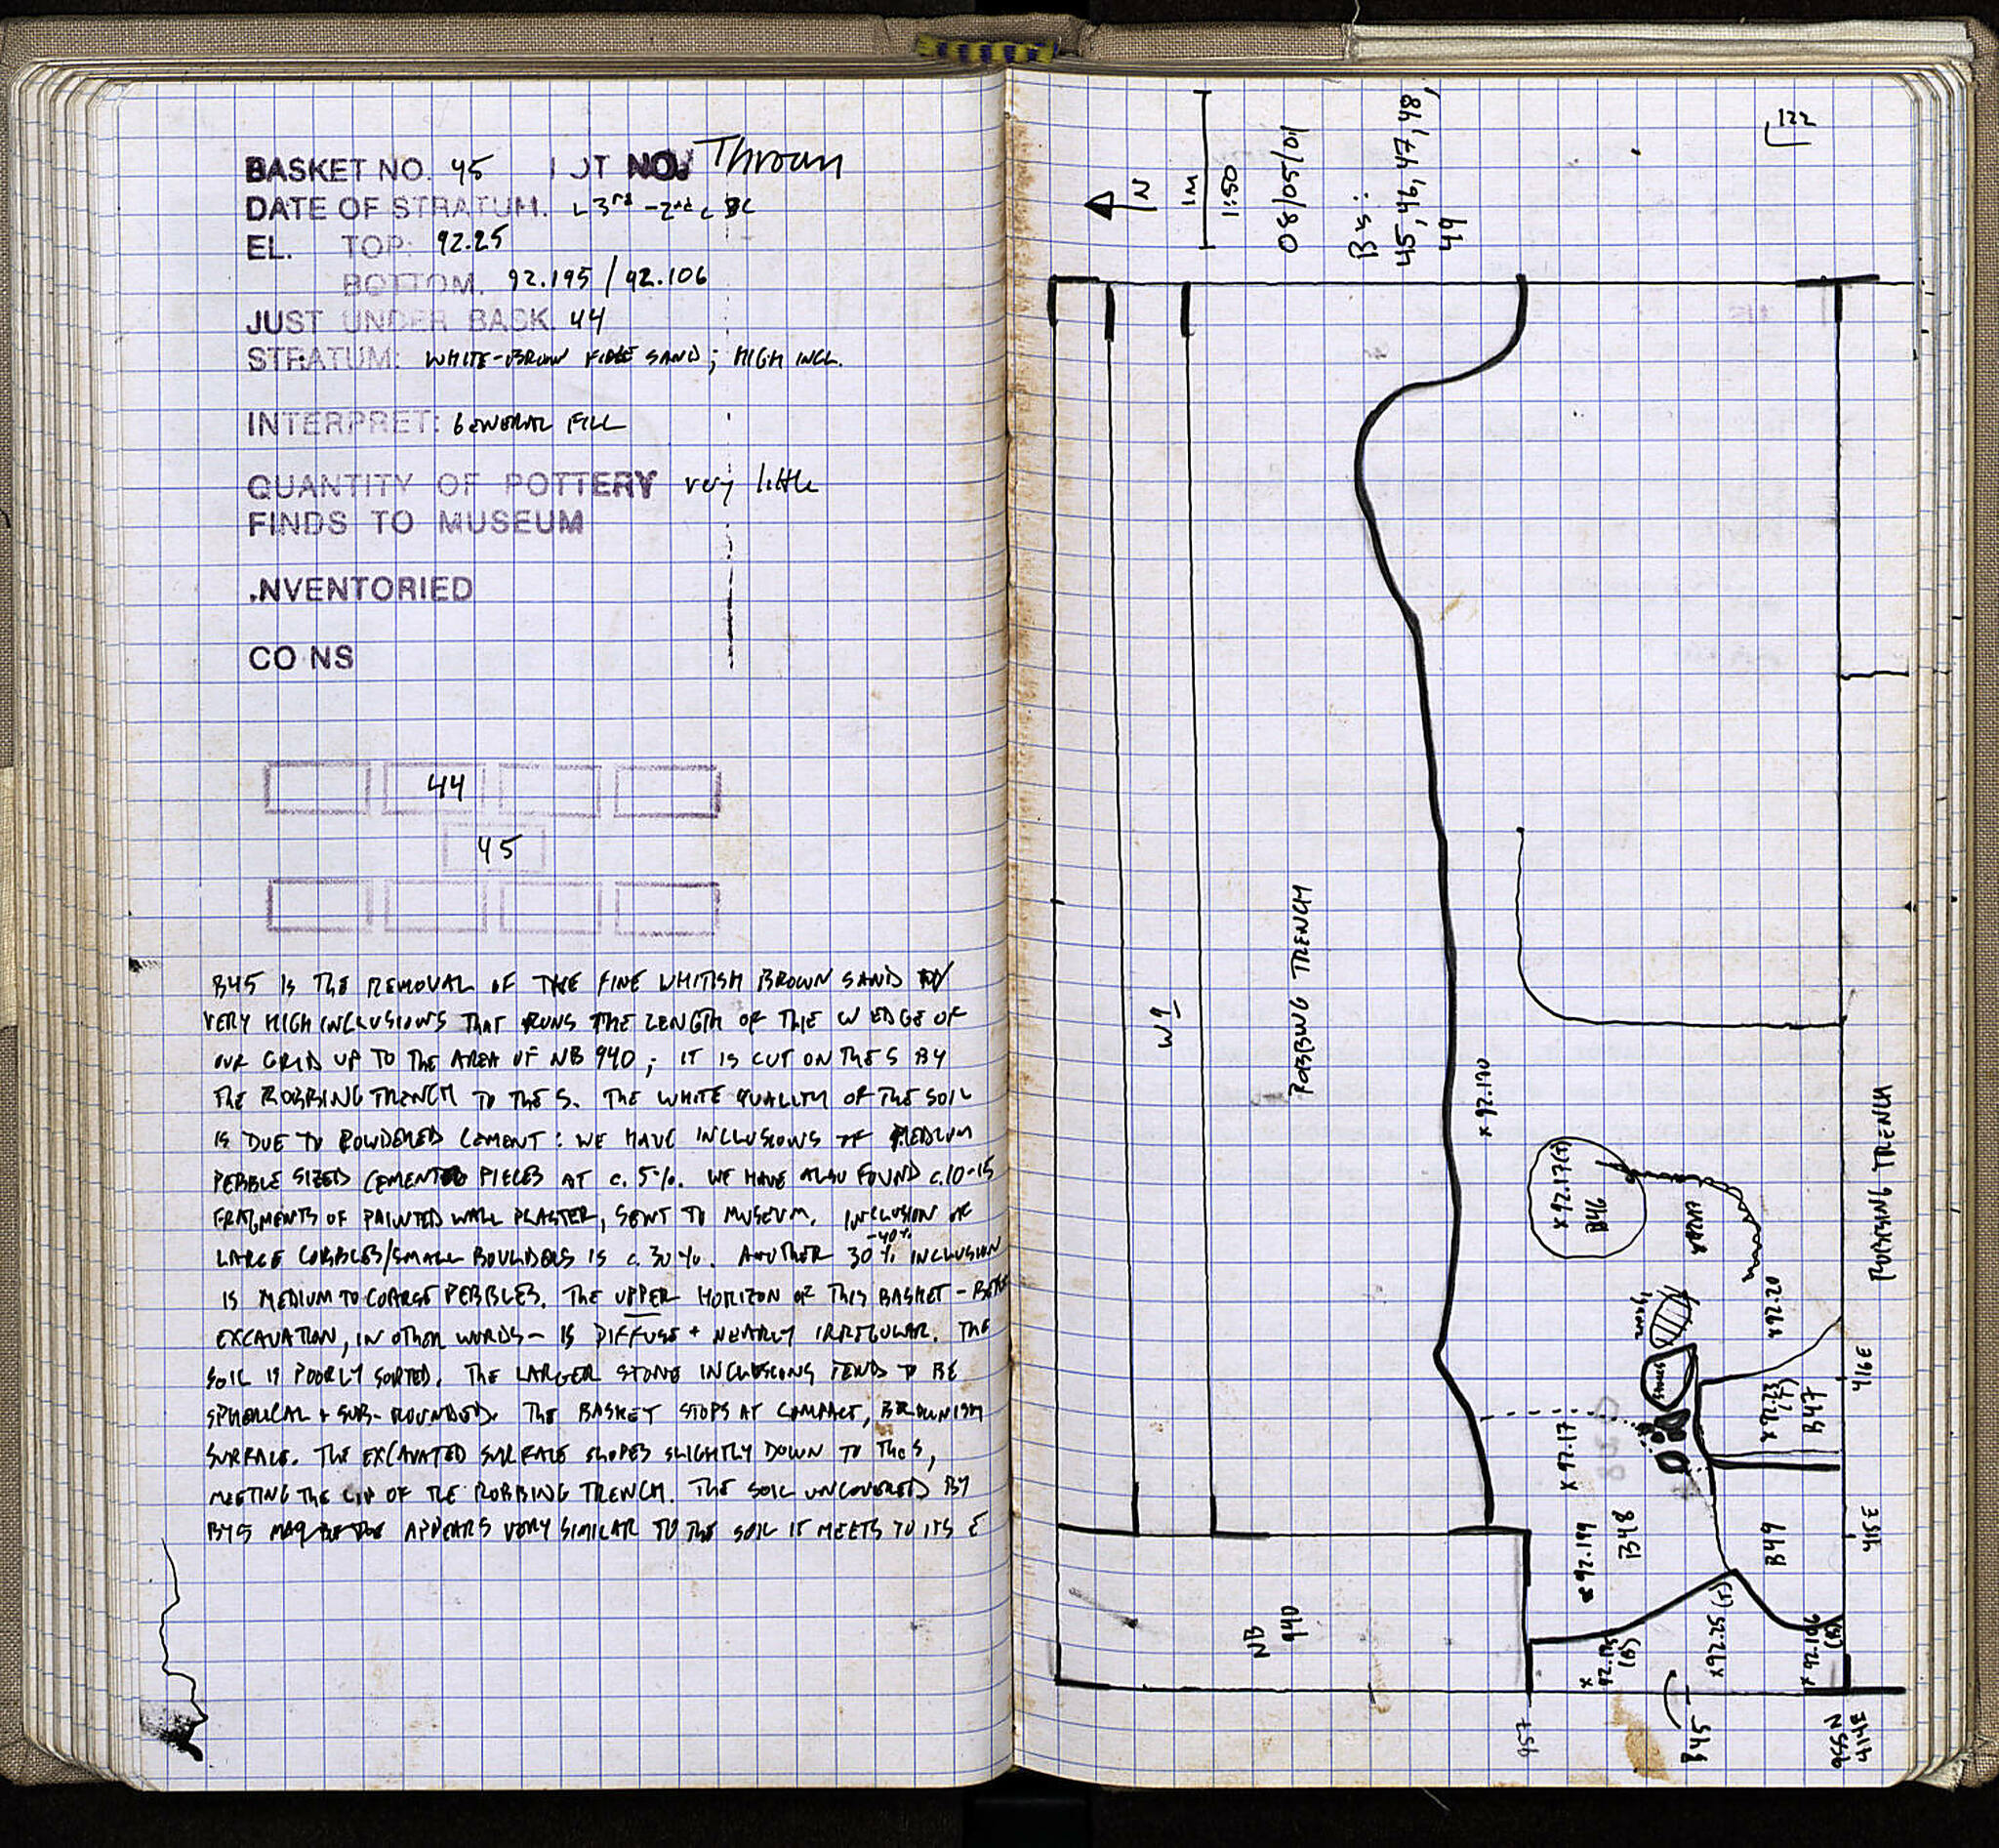 BASKET NO. 45 LOT NO. Thrown
DATE OF STRATUM. L 3rd - 2nd c BC
EL. TOP: 92.25
BOTTOM. 92.195 / 92.106
JUST UNDER BASK. 44
STRATUM: WHITE-BROWN FINE SAND; HIGH INCL.
INTERPRET: GENERAL FILL
QUANTITY OF POTTERY very little
FINDS TO MUSEUM
.NVENTORIED
CO NS
44
45
B45 IS THE REMOVAL OF THE FINE WHITISH BROWN SAND W/
VERY HIGH INCLUSIONS THAT RUNS THE LENGTH OF THE W EDGE OF
OUR GRID UP TO THE AREA OF NB 940; IT IS CUT ON THE S BY
THE ROBBING TRENCH TO THE S. THE WHITE QUALITY OF THE SOIL
IS DUE TO POWDERED CEMENT: WE HAVE INCLUSIONS OF MEDIUM
PEBBLE SIZED CEMENT PIECES AT c. 5%. WE HAVE ALSO FOUND c.10-15
FRAGMENTS OF PAINTED WALL PLASTER, SENT TO MUSEUM. INCLUSION OF
LARGE COBBLES/SMALL BOULDERS IS c. 30%. ANOTHER 30 -40% INCLUSION
IS MEDIUM TO COARSE PEBBLES. THE UPPER HORIZON OF THIS BASKET -
EXCAVATION, IN OTHER WORDS - IS DIFFUSE + NEARLY IRREGULAR. THE
SOIL IS POORLY SORTED. THE LARGER STONE INCLUSIONS TEND TO BE
SPHERICAL + SUB-ROUNDED. THE BASKET STOPS AT COMPACT, BROWNISH
SURFACE. THE EXCAVATED SURFACE SLOPES SLIGHTLY DOWN TO THE S,
MEETING THE LIP OF THE ROBBING TRENCH. THE SOIL UNCOVERED BY
B45 APPEARS VERY SIMILAR TO THE SOIL IT MEETS TO ITS E
122
N
1M
1:50
08/05/01
B's:
45, 46, 47, 48,
49
W9
ROBBING TRENCH
x 92.170
x 92.17(T)
B46
x 92.20
ROBBING TRENCH
416E
B47
x 92.23
(T)
x 92.17
B48
92.199
B49
415E
x 92.25 (T)
x
92.195
(B)
x 92.106
(B)
NB
940
957
B45
956N
414E